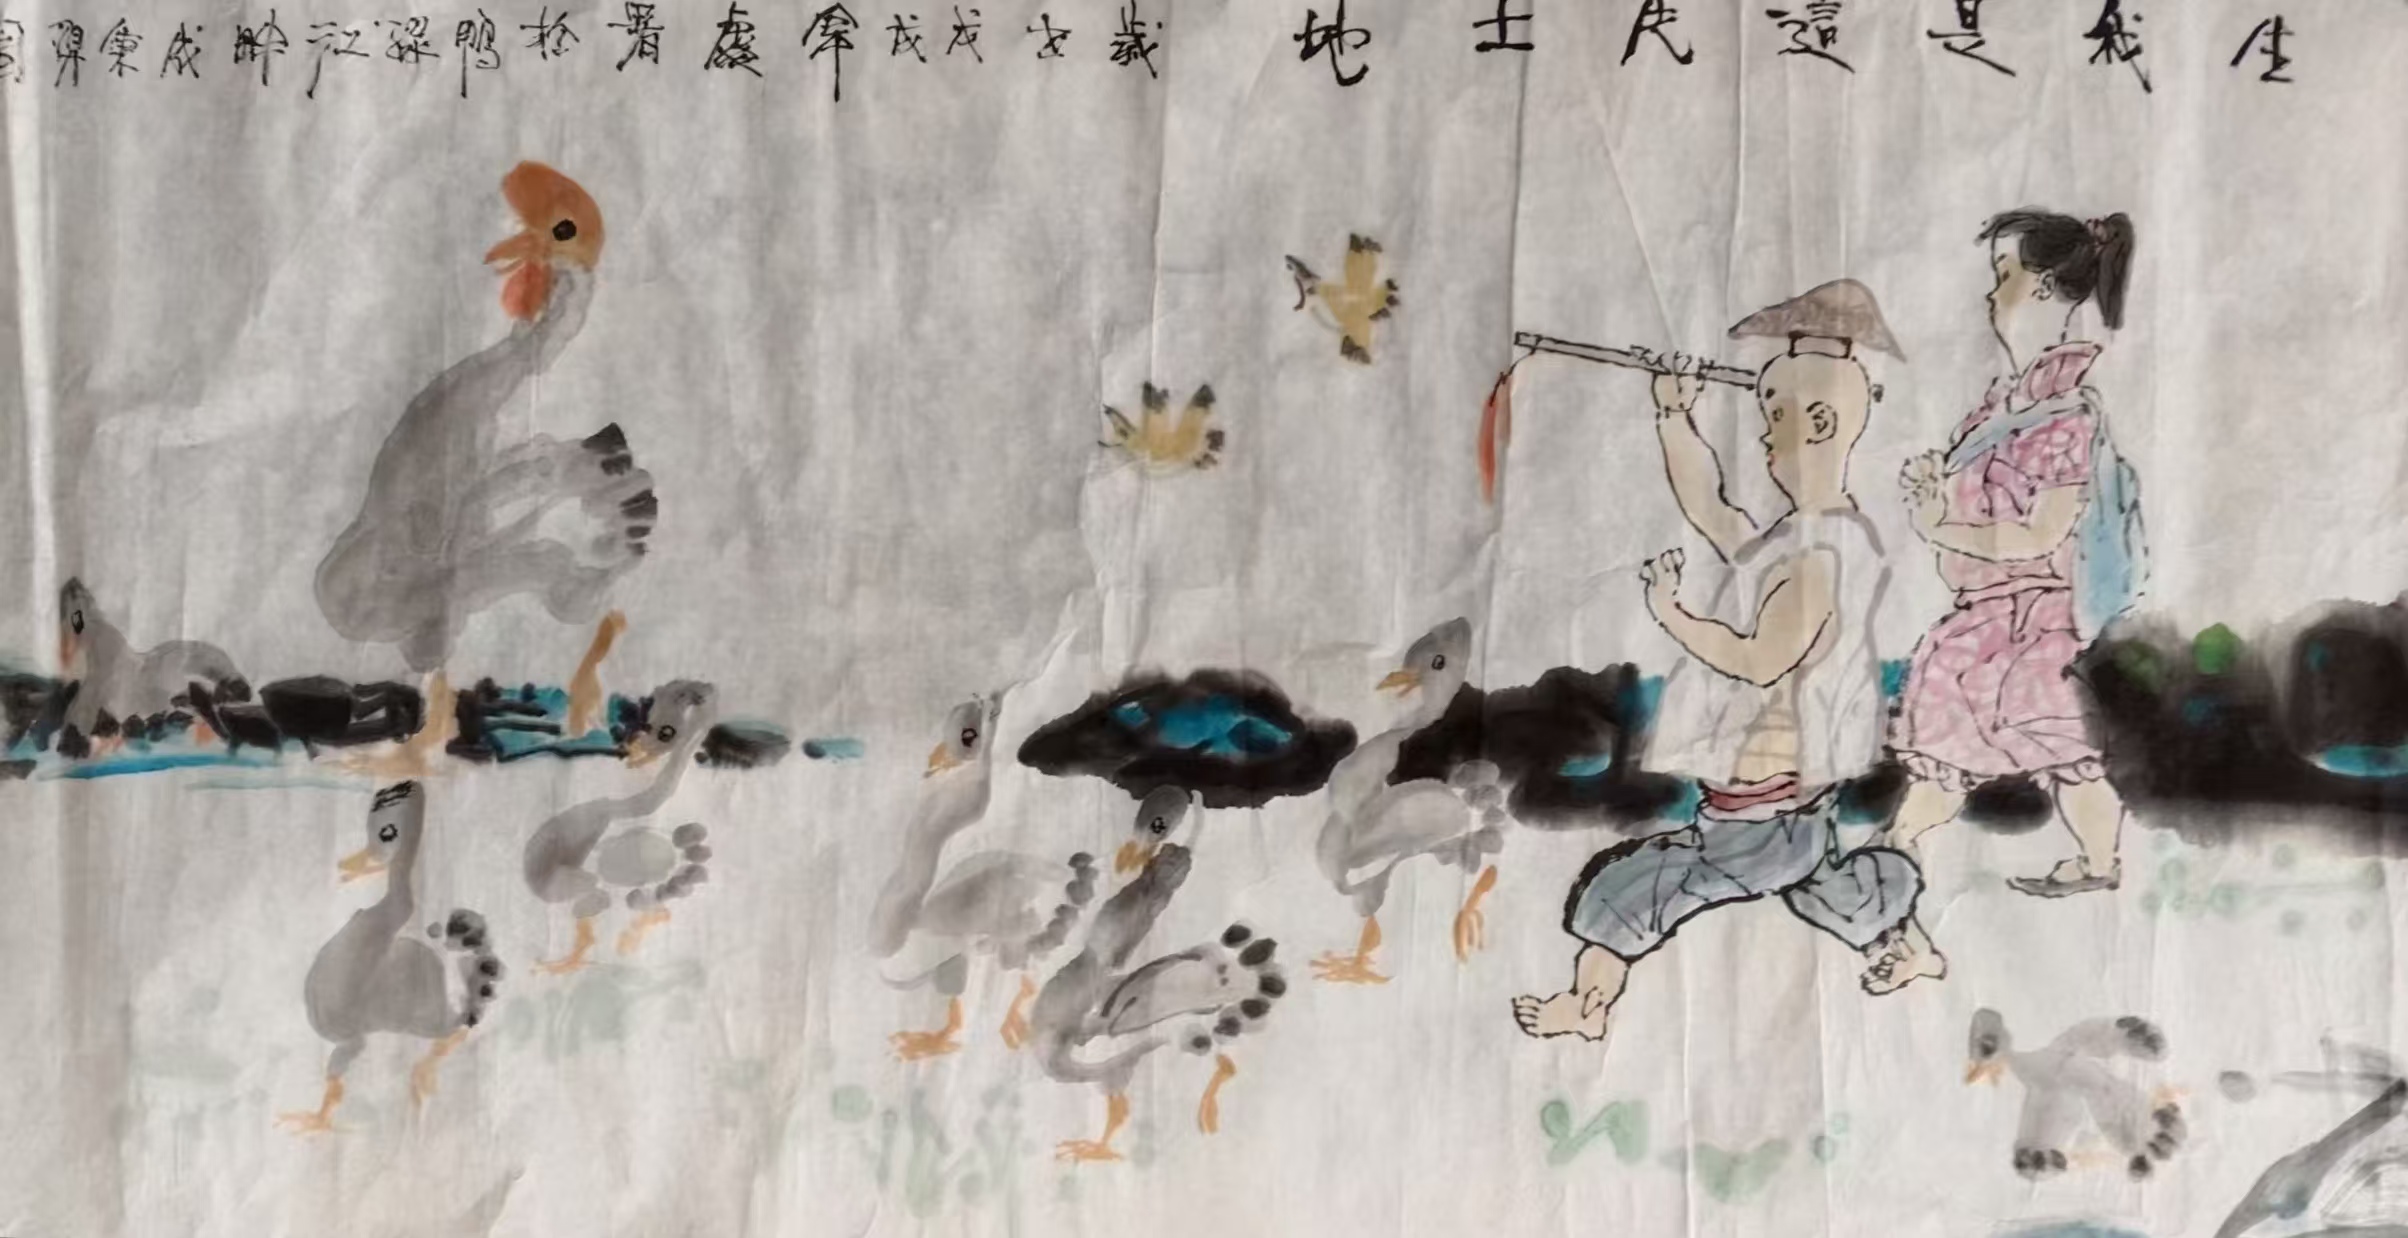 生我是這片土地 歲戊戌年處暑於鴨綠江畔成